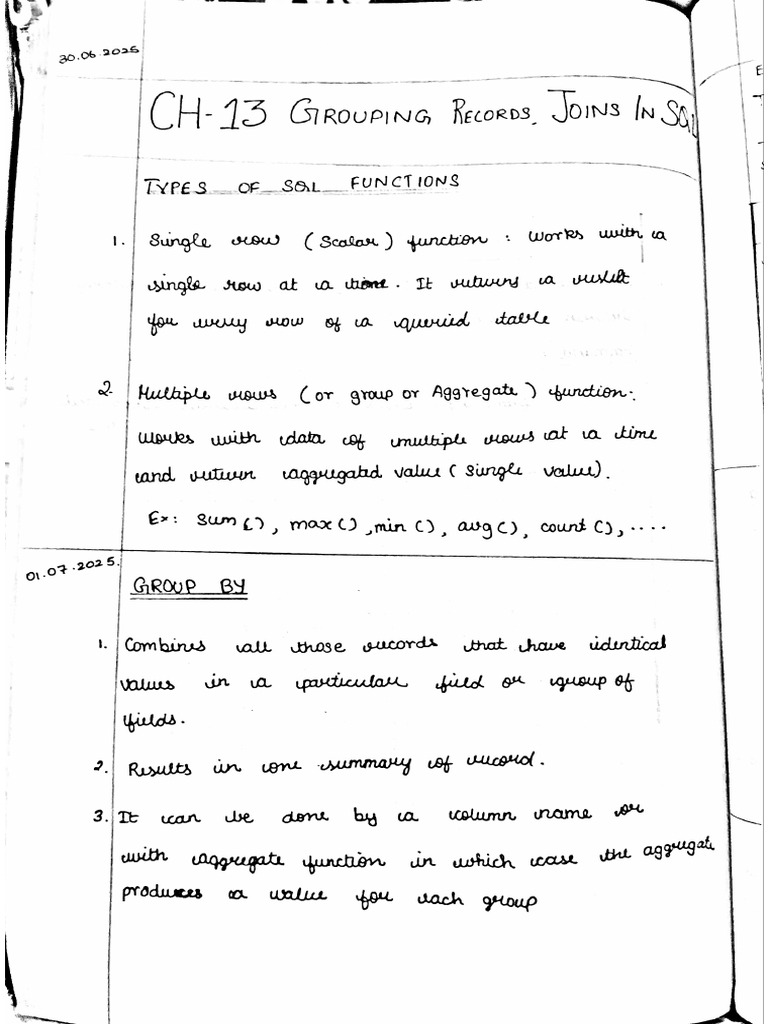 30.06.2025
CH-13 GROUPING RECORDS, JOINS IN SQL
TYPES OF SQL FUNCTIONS
1. Single row (Scalar) function : Works with a
single row at a time. It returns a result
for every row of a queried table
2. Multiple rows (or group or Aggregate) function:
Works with data of multiple rows at a time
and return aggregated value (single value).
Ex: Sum(), max(), min(), avg(), count(), ....
01.07.2025.
GROUP BY
1. Combines all those records that have identical
values in a particular field or group of
fields.
2. Results in one summary of record.
3. It can be done by a column name or
with aggregate function in which case the aggregate
produces a value for each group